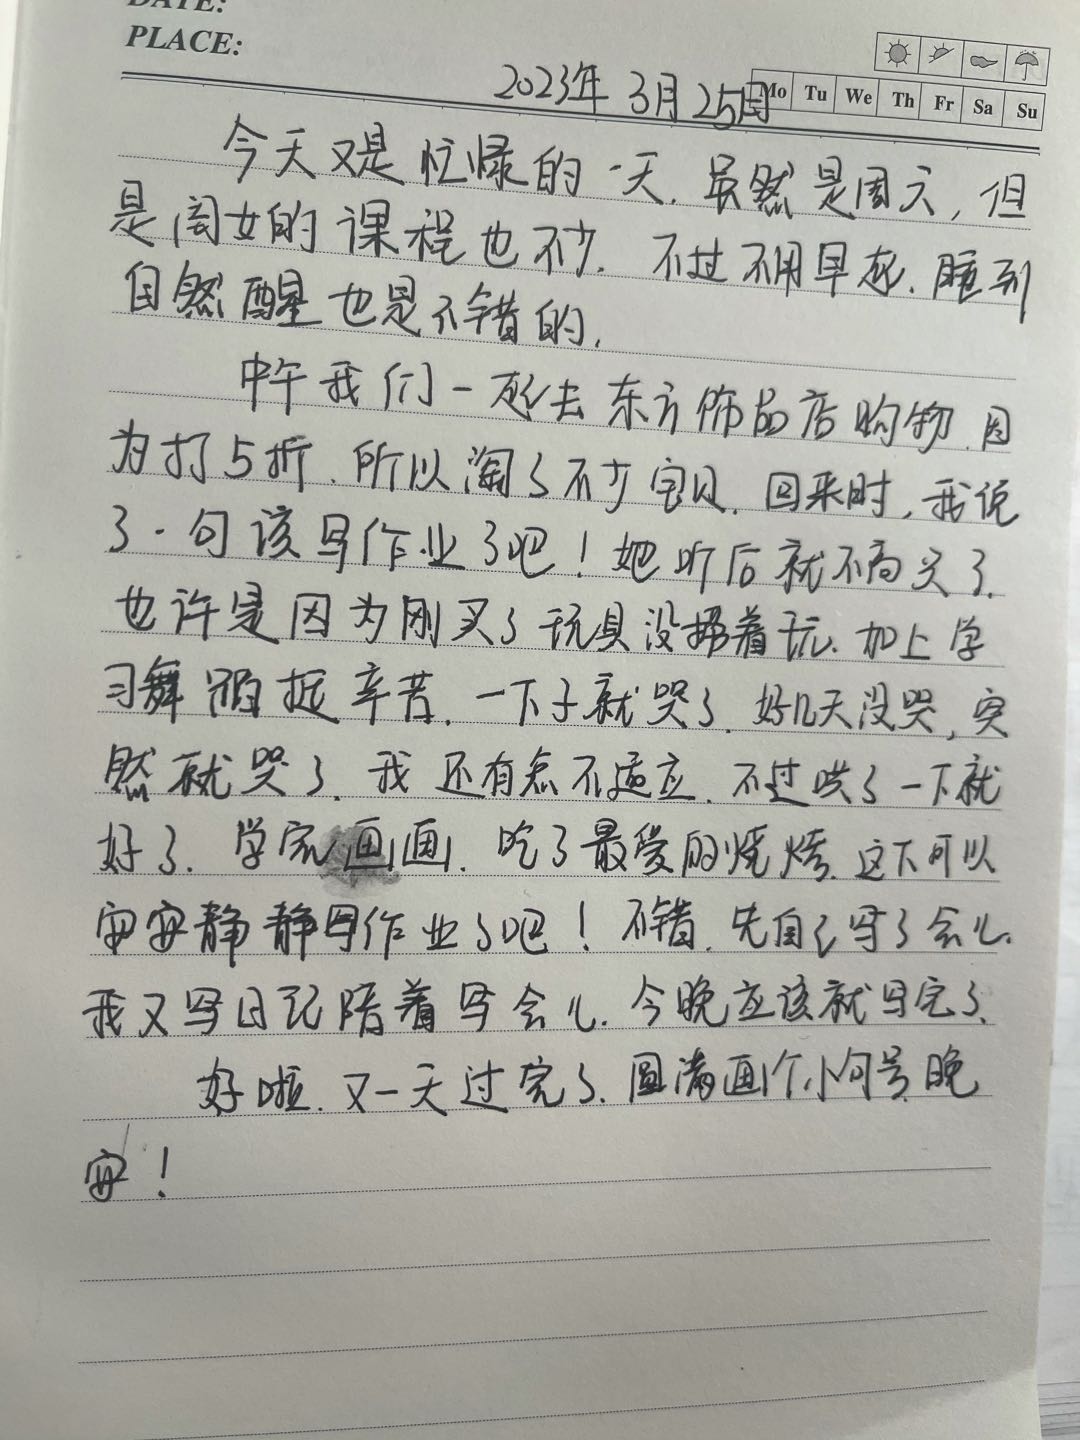 DATE:
PLACE:
2023年 3月 25日
Mo Tu We Th Fr Sa Su
今天又是忙碌的一天. 虽然是周六, 但
是闺女的课程也不少. 不过不用早起. 睡到
自然醒也是不错的.
中午我们一起去东方饰品店购物. 因
为打5折. 所以淘了不少宝贝. 回来时, 我说
了一句该写作业了吧! 她听后就不高兴了.
也许是因为刚买了玩具没捂着玩. 加上学
习舞蹈挺辛苦. 一下子就哭了. 好几天没哭, 突
然就哭了. 我还有点不适应. 不过哄了一下就
好了. 学完画画. 吃了最爱的烧烤. 这下可以
安安静静写作业了吧! 不错. 先自己写了会儿.
我又写日记陪着写会儿. 今晚应该就写完了.
好啦. 又一天过完了. 圆满画个小句号. 晚
安!